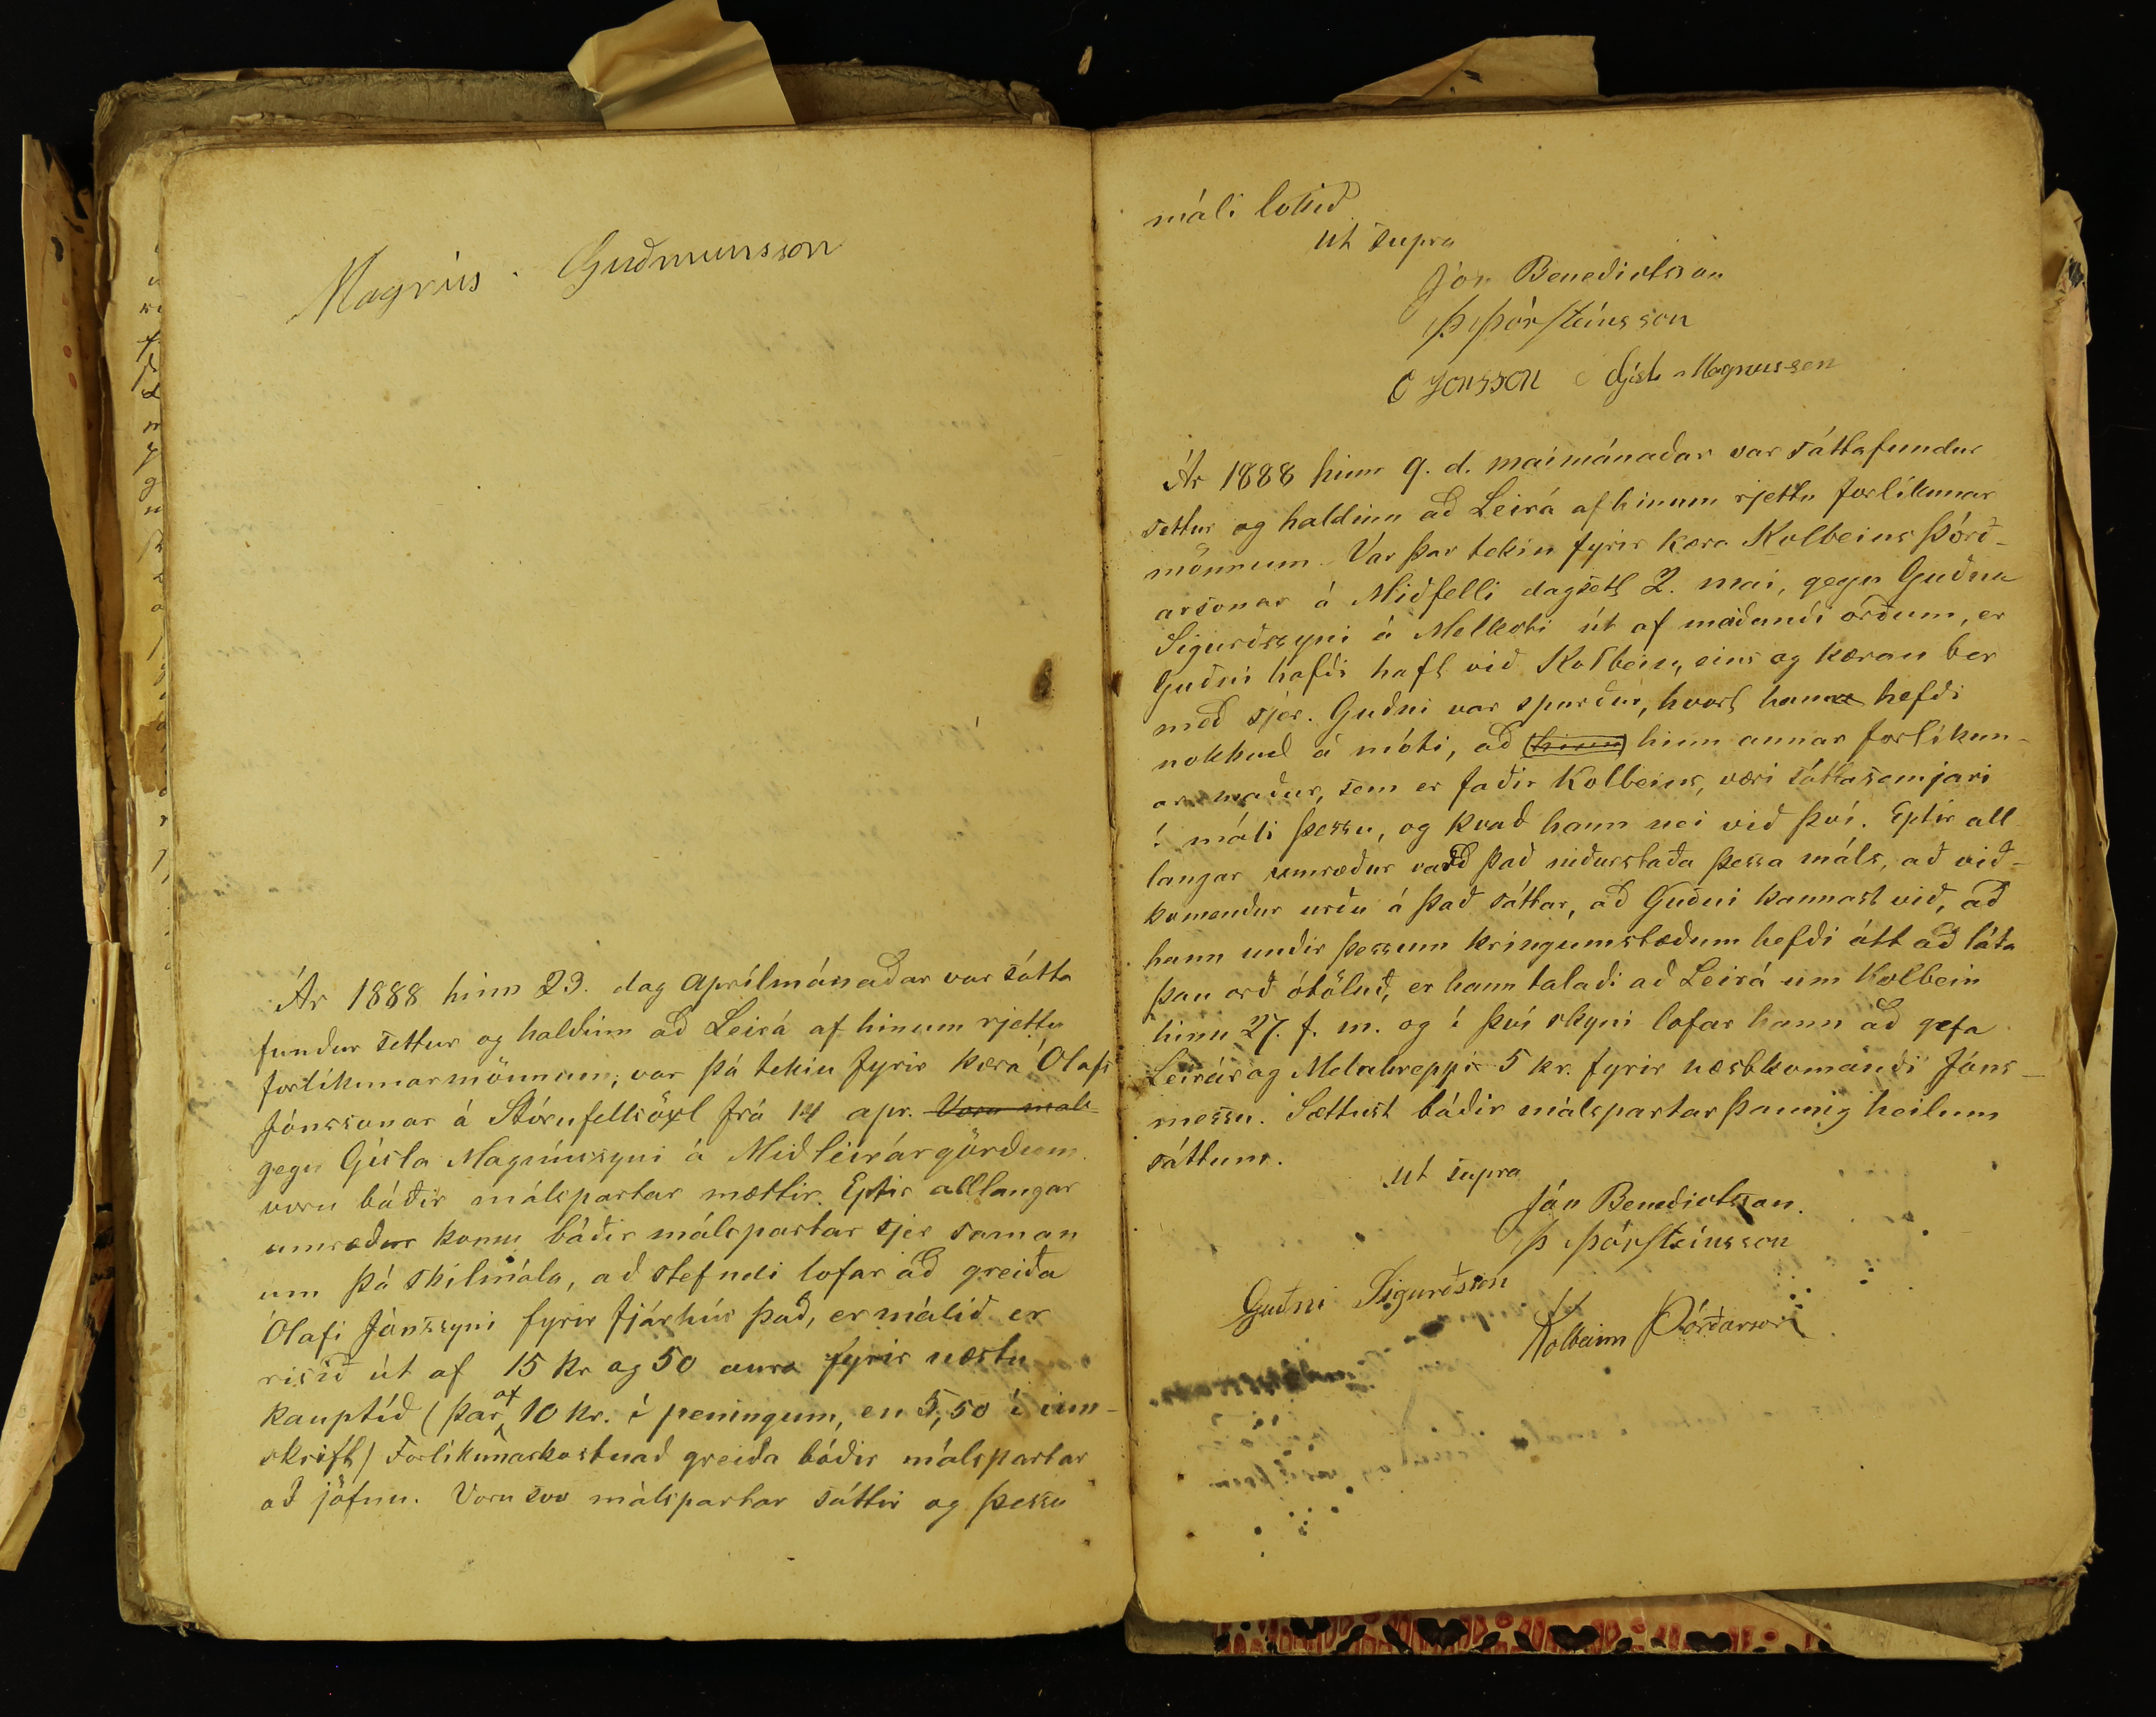 Magnús Guðmunsson
Ár 1888 hinn 23. dag aprílmánaðar var sátta
fundur settur og haldinn að Leirá af hinum rjettu
forlíkunarmönnum; var þá tekin fyrir kæra Ólafs
Jónssonar á Stórufellsöxl frá 14 apr. Voru mals-
gegn Gísla Magnússyni á Miðleirárgörðum.
voru báðir málspartar mættir. Eptir alllangar
umræður komu báðir málspartar sjer saman
um þá skilmála, að stefndi lofar að greiða
Ólafi Jónssyni fyrir fjárhús það, er málið er
risið út af 15 kr og 50 aura fyrir næstu
kauptíð (þar af 10 kr. í peningum, en 5,50 í inn-
skrift) Forlíkunarkostnað greiða báðir málspartar
að jöfnu. Voru svo málspartar sáttir og þessu
máli lokið
ut supra
Jón Benedictsson
Þ Þórsteinsson
O Jonsson Gísli Magnusson
Ár 1888 hinn 9. d. maímánaðar var sáttafundur
settur og haldinn að Leirá af hinum rjettu forlíkunar
mönnum. Var þar tekin fyrir kæra Kolbeins Þórð-
arsonar á Miðfelli dagsett 2. mai, gegn Guðna
Sigurðssyni á Melkoti út af meiðandi orðum, er
Guðni hafði haft við Kolbein, eins og kæran ber
með sjer. Guðni var spurður, hvort hann hefði
nokkuð á móti, að (hinn) hinn annar forlíkun-
ar maður, sem er faðir Kolbeins, væri sáttasemjari
í máli þessu, og kvað hann nei við því. Eptir all
langar umræður varð það niðurstaða þessa máls, að við-
komendur urðu á það sáttar, að Guðni kannast við, að
hann undir þessum kringumstæðum hefði átt að láta
þau orð ótöluð, er hann talaði að Leirá um Kolbein
hinn 27. f. m. og í því skyni lofar hann að gefa
Leirár og Melahreppi 5 kr. fyrir næstkomandi Jóns-
messu. Sættust báðir málspartar þannig heilum
sáttum.
ut supra
Jón Benedictsson.
Þ Þórsteinsson
Guðni Sigurðsson
Kolbeinn Þórðarson